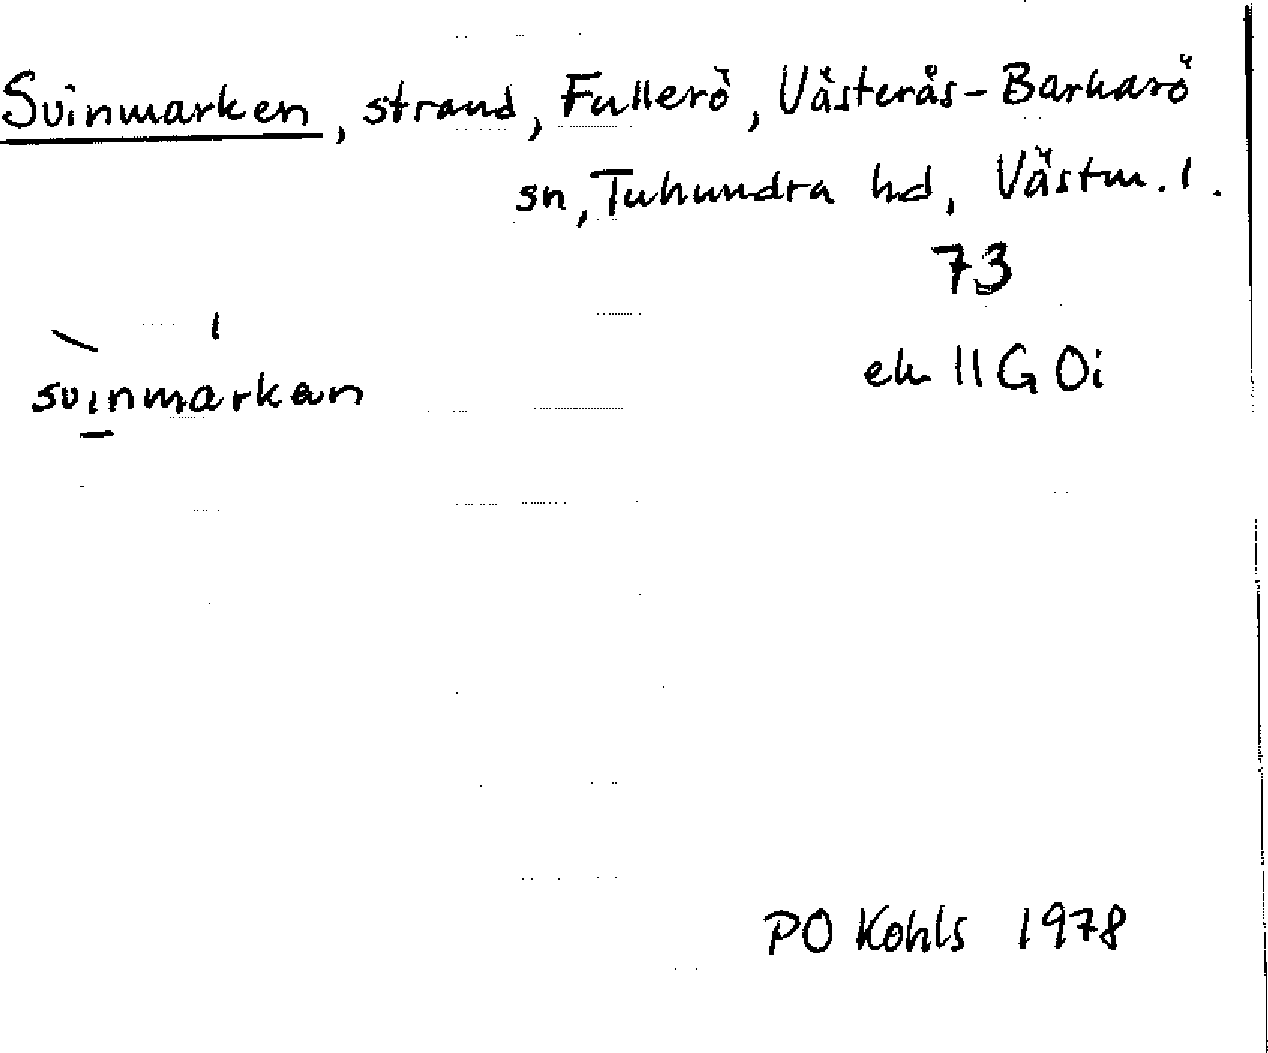 Svinmarken, strand, Fullerö, Västerås-Barkarö
sn, Tuhundra hd, Västm. l.
73
svinmarkan
ek 11G 0i
PO Kohls 1978